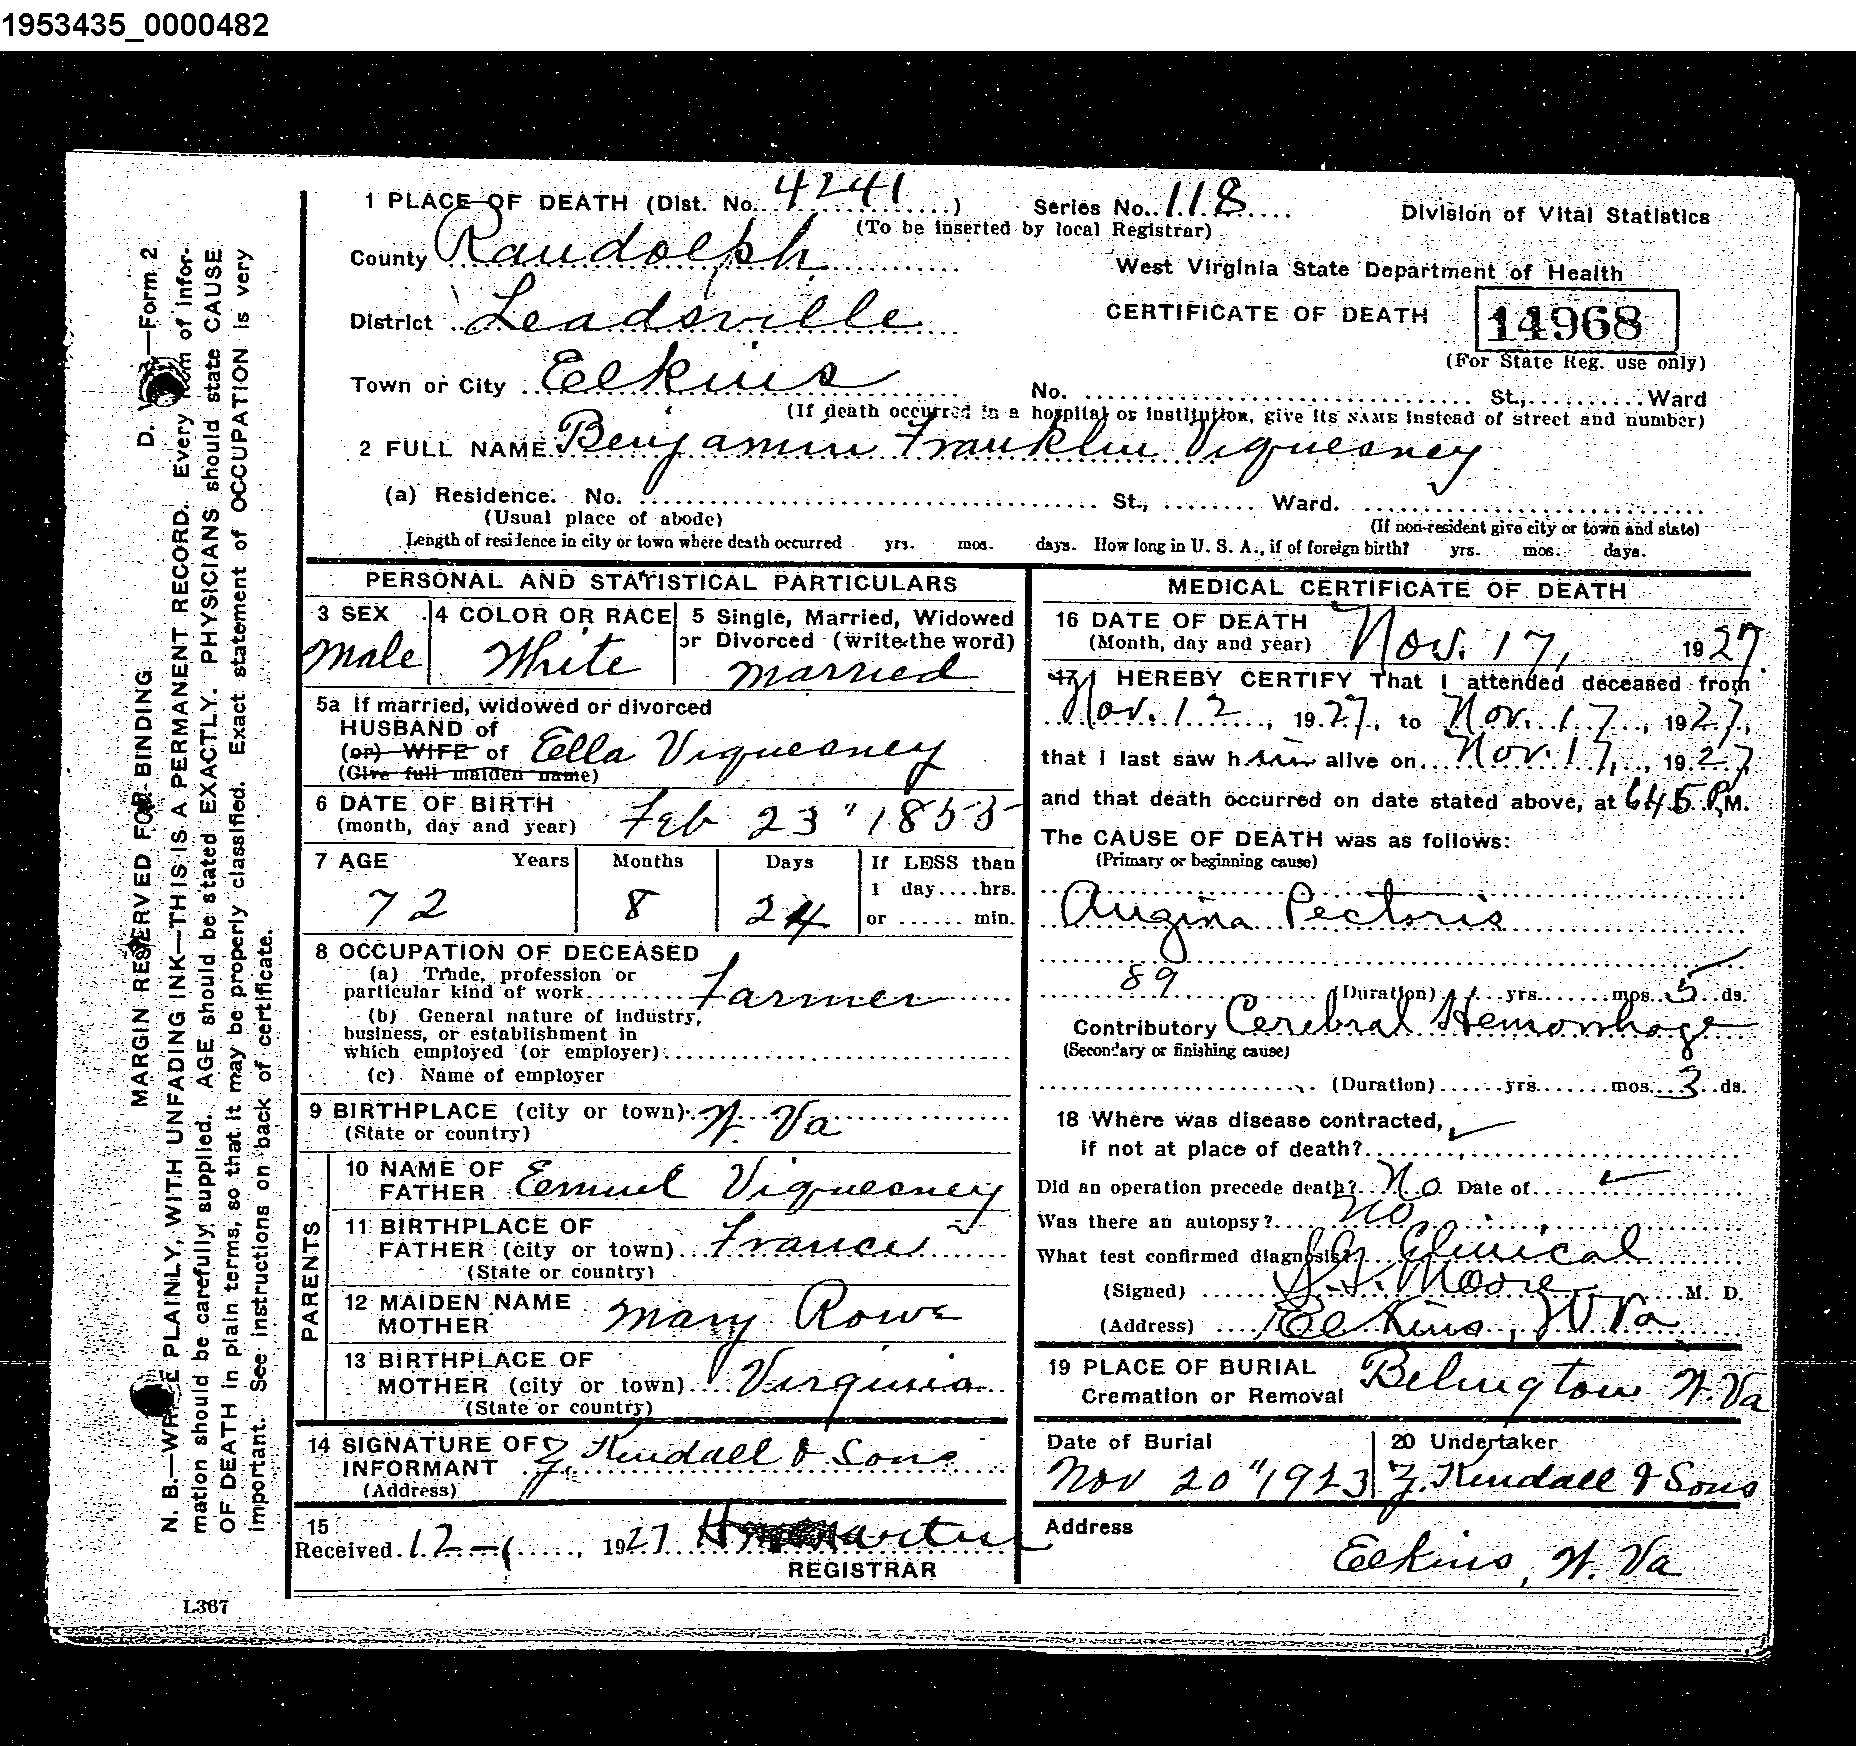 1953435_0000482
1 PLACE OF DEATH (Dist. No. 4241) Series No. 118 Division of Vital Statistics
(To be inserted by local Registrar)
County Randolph West Virginia State Department of Health
District Leadsville CERTIFICATE OF DEATH 14968
(For State Reg. use only)
Town or City Elkins No. St., Ward
(If death occurred in a hospital or institution, give its NAME instead of street and number)
2 FULL NAME Benjamin Franklin Viquesney
(a) Residence. No. St., Ward.
(Usual place of abode) (If non-resident give city or town and state)
Length of residence in city or town where death occurred yrs. mos. days. How long in U. S. A., if of foreign birth? yrs. mos. days.
PERSONAL AND STATISTICAL PARTICULARS
3 SEX 4 COLOR OR RACE 5 Single, Married, Widowed
or Divorced (write the word)
Male White married
5a If married, widowed or divorced
HUSBAND of
(or) WIFE of Ella Viquesney
(Give full maiden name)
6 DATE OF BIRTH
(month, day and year) Feb 23" 1855
7 AGE Years Months Days If LESS than
1 day....hrs.
72 8 24 or ...... min.
8 OCCUPATION OF DECEASED
(a) Trade, profession or
particular kind of work Farmer
(b) General nature of industry,
business, or establishment in
which employed (or employer)
(c) Name of employer
9 BIRTHPLACE (city or town) W. Va
(State or country)
PARENTS
10 NAME OF
FATHER Eemuel Viquesney
11 BIRTHPLACE OF
FATHER (city or town) France
(State or country)
12 MAIDEN NAME
MOTHER Mary Rowe
13 BIRTHPLACE OF
MOTHER (city or town) Virginia
(State or country)
14 SIGNATURE OF
INFORMANT Z. Kendall & Sons
(Address)
15
Received 12-1, 1927
REGISTRAR
MEDICAL CERTIFICATE OF DEATH
16 DATE OF DEATH
(Month, day and year) Nov. 17, 1927.
17 I HEREBY CERTIFY That I attended deceased from
Nov. 12, 1927, to Nov. 17, 1927,
that I last saw him alive on Nov. 17, 1927
and that death occurred on date stated above, at 645 P.M.
The CAUSE OF DEATH was as follows:
(Primary or beginning cause)
Angina Pectoris
89 (Duration) yrs. mos. 5 ds.
Contributory Cerebral Hemorrhage
(Secondary or finishing cause)
(Duration) yrs. mos. 3 ds.
18 Where was disease contracted,
if not at place of death?
Did an operation precede death? No Date of
Was there an autopsy? no
What test confirmed diagnosis? Clinical
(Signed) Moore M. D.
(Address) Elkins, W Va
19 PLACE OF BURIAL
Cremation or Removal Belington W. Va
Date of Burial 20 Undertaker
Nov 20" 1923 Z. Kendall & Sons
Address
Elkins, W. Va
D. —Form 2
MARGIN RESERVED FOR BINDING
N. B.—WRITE PLAINLY, WITH UNFADING INK—THIS IS A PERMANENT RECORD. Every item of infor-
mation should be carefully supplied. AGE should be stated EXACTLY. PHYSICIANS should state CAUSE
OF DEATH in plain terms, so that it may be properly classified. Exact statement of OCCUPATION is very
important. See instructions on back of certificate.
L367